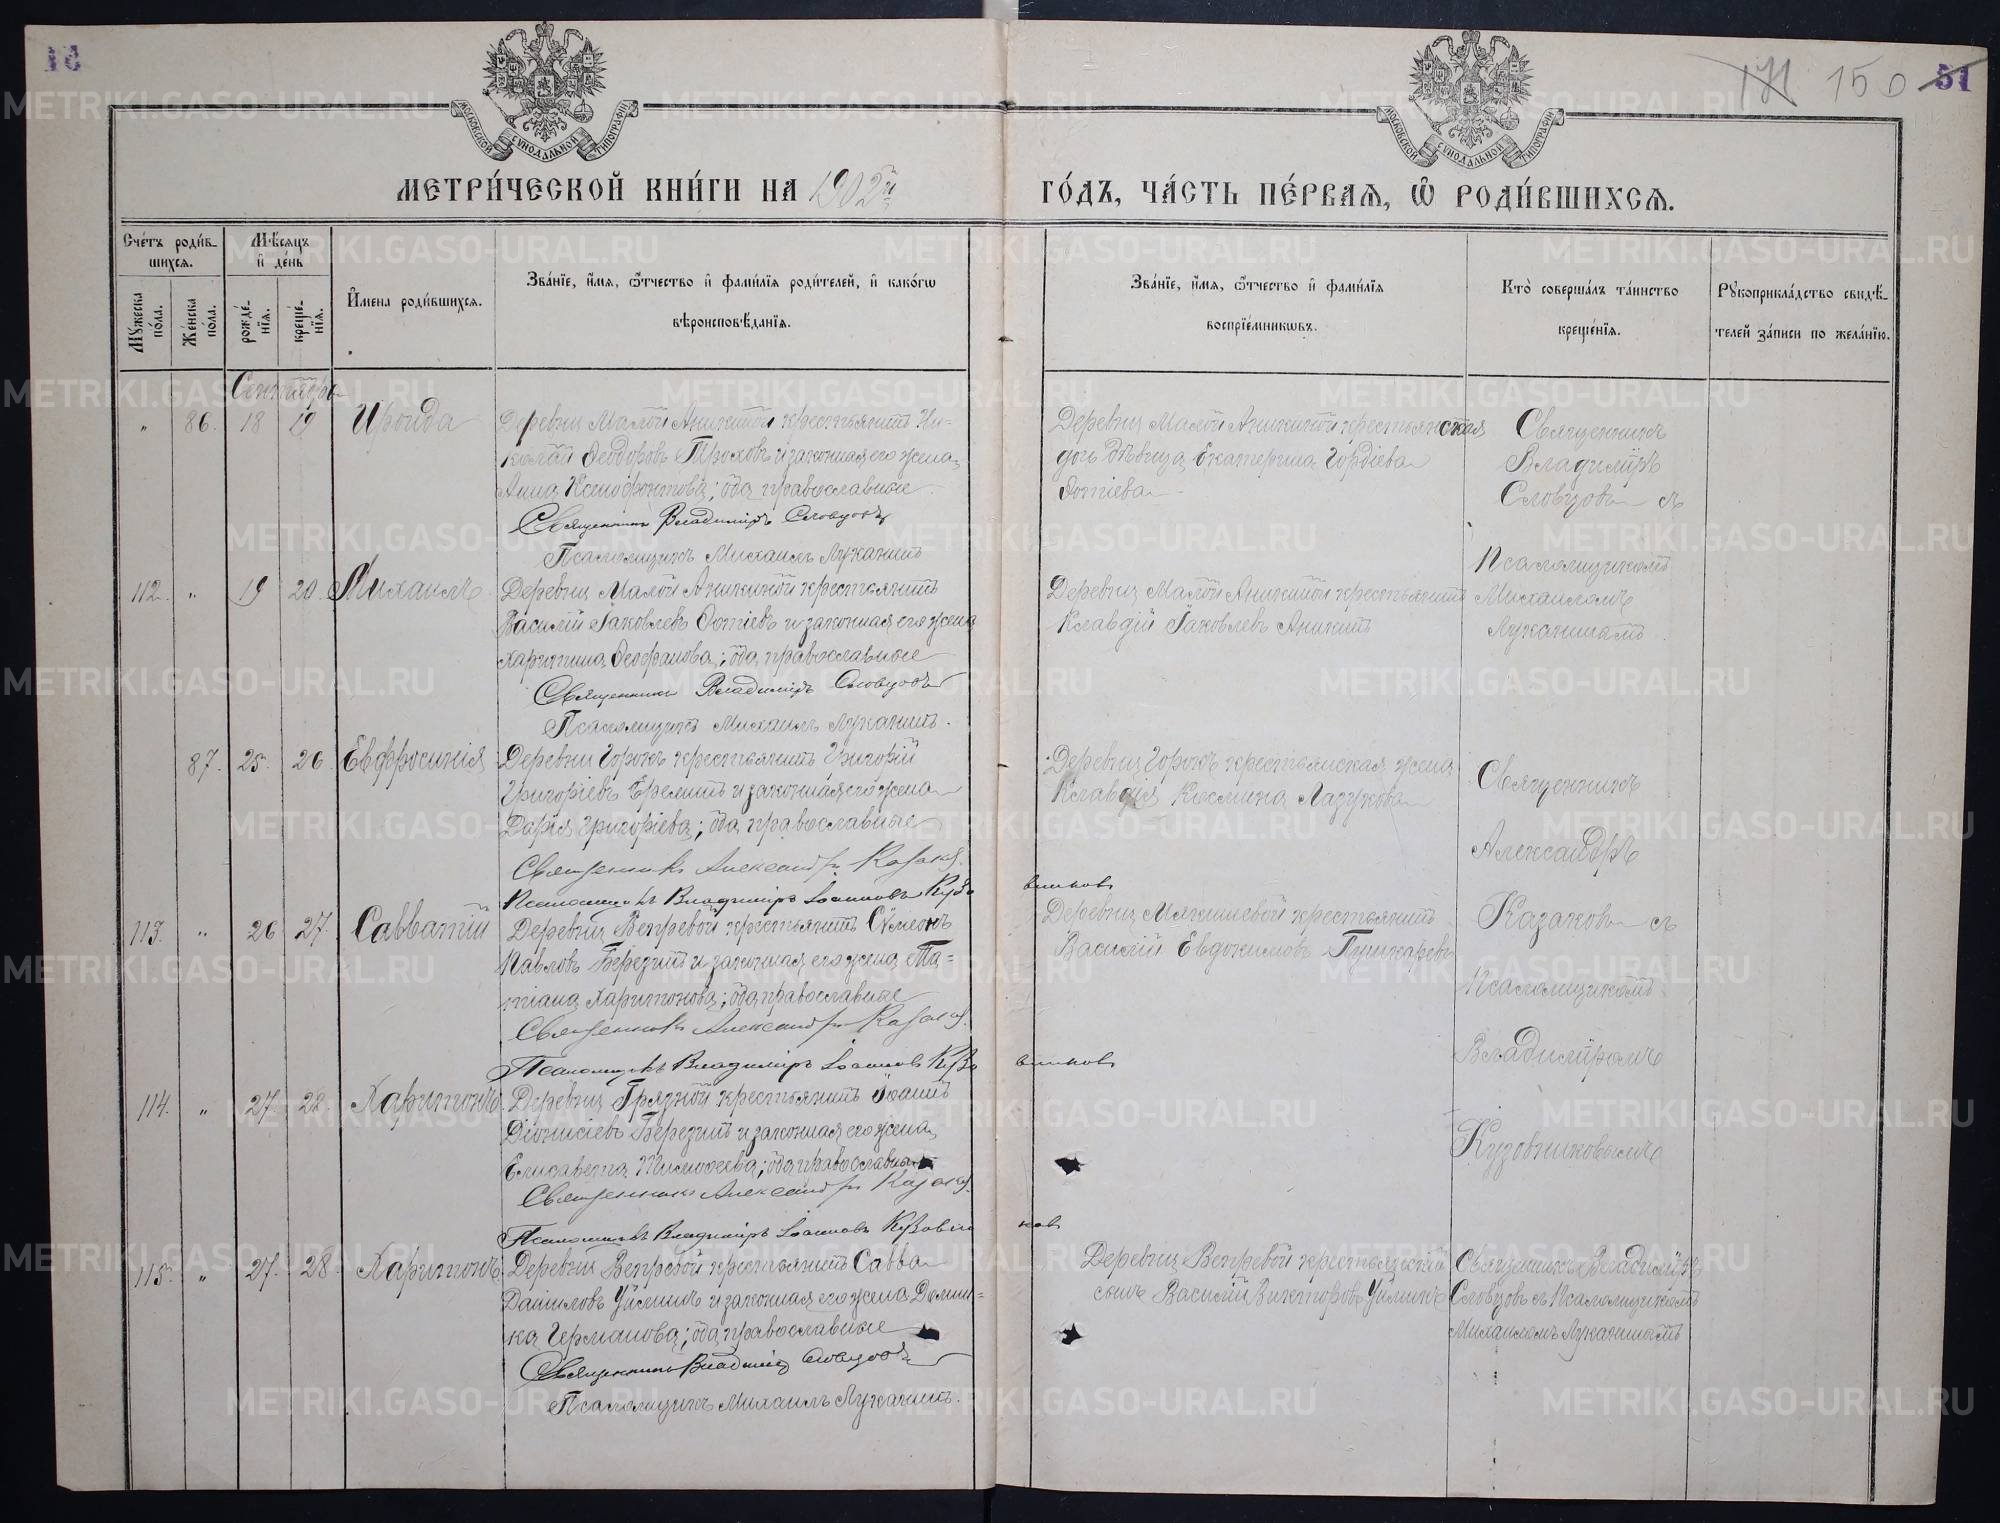 51
171 150 51
МОСКОВСКОЙ СѴНОДАЛЬНОЙ ТИПОГРАФІИ
МОСКОВСКОЙ СѴНОДАЛЬНОЙ ТИПОГРАФІИ
МЕТРИ́ЧЕСКОЙ КНИ́ГИ НА 1902й
ГО́ДЪ, ЧА́СТЬ ПЕ́РВАѦ, Ѽ РОДИ́ВШИХСѦ.
Счéтъ роди́вшихсѧ.
Мꙋжеска по́ла.
Же́нска по́ла.
Мѣ́сѧцъ и де́нь
рожде́нїѧ.
креще́нїѧ.
И҆мена роди́вшихсѧ.
Зва́нїе, и҆́мѧ, ѻ҆́тчество и҆ фами́лїѧ роди́телей, и҆ како́гѡ
вѣроисповѣ́данїѧ.
Зва́нїе, и҆́мѧ, ѻ҆́тчество и҆ фами́лїѧ
воспрїе́мникѡвъ.
Кто̀ соверша́лъ та́инство
креще́нїѧ.
Рꙋкоприкла́дство свидѣ́-
телей за́писи по жела́нїю.
Сентябрь
„ 86. 18 19 Ироида
Деревни Малой Аникиной крестьянинъ Ни-
колай Ѳеодоровъ Трюховъ и законная его жена
Анна Ксенофонтова; оба православные
Священникъ Владиміръ Словцовъ
Псаломщикъ Михаилъ Луканинъ
Деревни Малой Аникиной крестьянская
дочь дѣвица Екатерина Гордіева
Фотіева
Священникъ
Владиміръ
Словцовъ съ
Псаломщикомъ
Михаиломъ
Луканинымъ
112. „ 19 20. Михаилъ
Деревни Малой Аникиной крестьянинъ
Василій Іаковлевъ Фотіевъ и законная его жена
Харитина Ѳеофанова; оба православные
Священникъ Владиміръ Словцовъ
Псаломщикъ Михаилъ Луканинъ.
Деревни Малой Аникиной крестьянинъ
Клавдій Іаковлевъ Аникинъ
87. 25. 26 Евфросинія
Деревни Горокъ крестьянинъ Григорій
Григоріевъ Ереминъ и законная его жена
Дарія Григоріева; оба православные
Священникъ Александръ Казаков.
Псаломщикъ Владиміръ Іоанновъ Кузовниковъ
Деревни Горокъ крестьянская жена
Клавдія Космина Лазукова
Священникъ
Александръ
Казаковъ съ
Псаломщикомъ
Владиміромъ
Кузовниковымъ
113. „ 26 27. Савватій
Деревни Вепревой крестьянинъ Сѵмеонъ
Павловъ Березинъ и законная его жена Та-
тіана Харитонова; оба православные
Священникъ Александръ Казаков.
Псаломщикъ Владиміръ Іоанновъ Кузовниковъ
Деревни Мякишевой крестьянинъ
Василій Евдокимовъ Пушкаревъ
114. „ 27. 28. Харитонъ
Деревни Грязной крестьянинъ Іоаннъ
Діонисіевъ Березинъ и законная его жена
Елисавета Тимоѳеева; оба православные
Священникъ Александръ Казаков.
Псаломщикъ Владиміръ Іоанновъ Кузовниковъ
115. „ 27. 28. Харитонъ
Деревни Вепревой крестьянинъ Савва
Даниловъ Уйминъ и законная его жена Домни-
ка Германова; оба православные
Священникъ Владиміръ Словцовъ
Псаломщикъ Михаилъ Луканинъ.
Деревни Вепревой крестьянскій
сынъ Василій Викторовъ Уйминъ
Священникъ Владиміръ
Словцовъ съ Псаломщикомъ
Михаиломъ Луканинымъ
METRIKI.GASO-URAL.RU